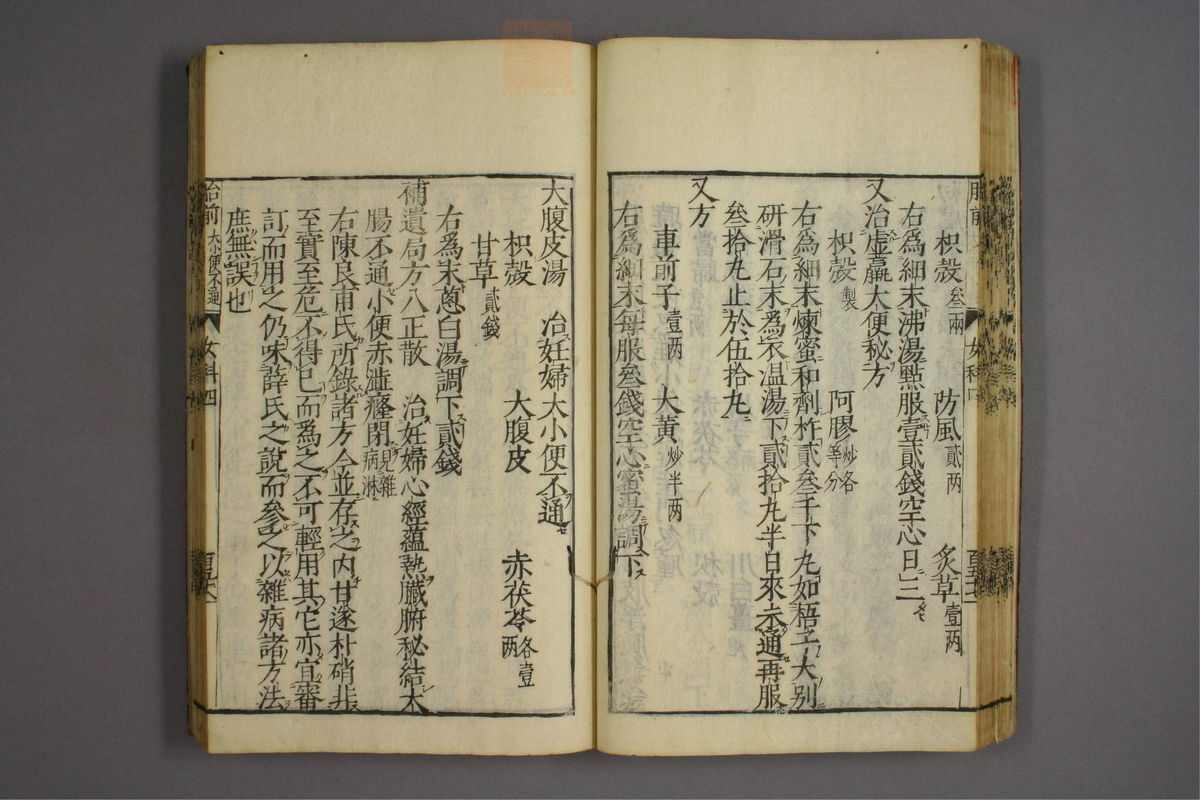 枳殼叁兩 防風貳两 炙草壹两
右爲細末沸湯㸃服壹貳錢空心日三
又治虛羸大便秘方
枳殼製 阿膠炒各等分
右爲細末煉蜜和劑杵貳叁千下丸如梧子大别
研滑石末爲衣温湯下貳拾丸半日來未通再服
叁拾丸止於伍拾丸
又方
車前子壹两 大黄炒半两
右爲細末每服叁錢空心蜜湯調下
大腹皮湯 治妊婦大小便不通
枳殼 大腹皮 赤茯苓各壹两
甘草貳錢
右爲末蔥白湯調下貳錢
補遺局方八正散 治妊婦心經蘊熱臓腑秘結大
腸不通小便赤澁癃閉見雜病淋
右陳良甫氏所錄諸方今並存之内甘遂朴硝非
至實至危不得已而爲之不可輕用其它亦宜審
訂而用之仍味薛氏之說而參之以雜病諸方法
庶無誤也
治前 大小便不通 女科四